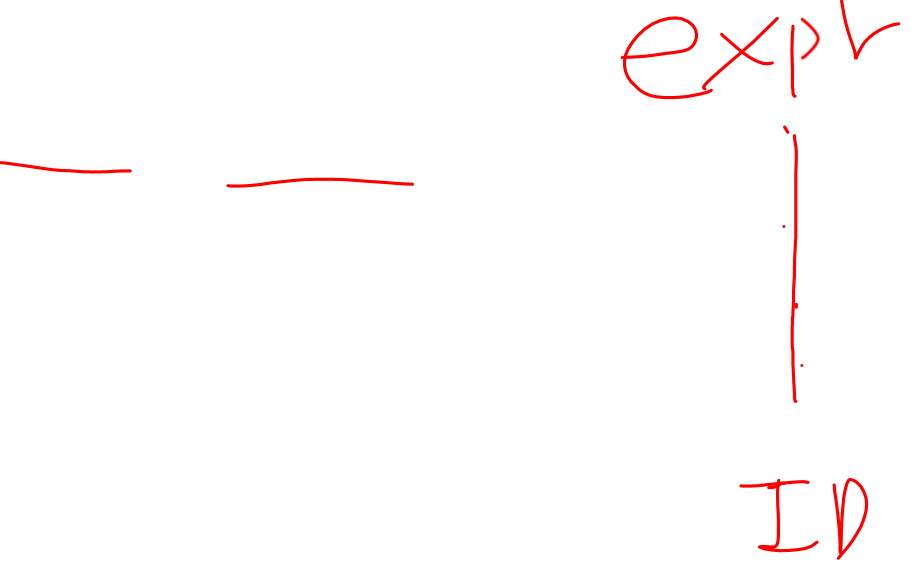 expr
ID